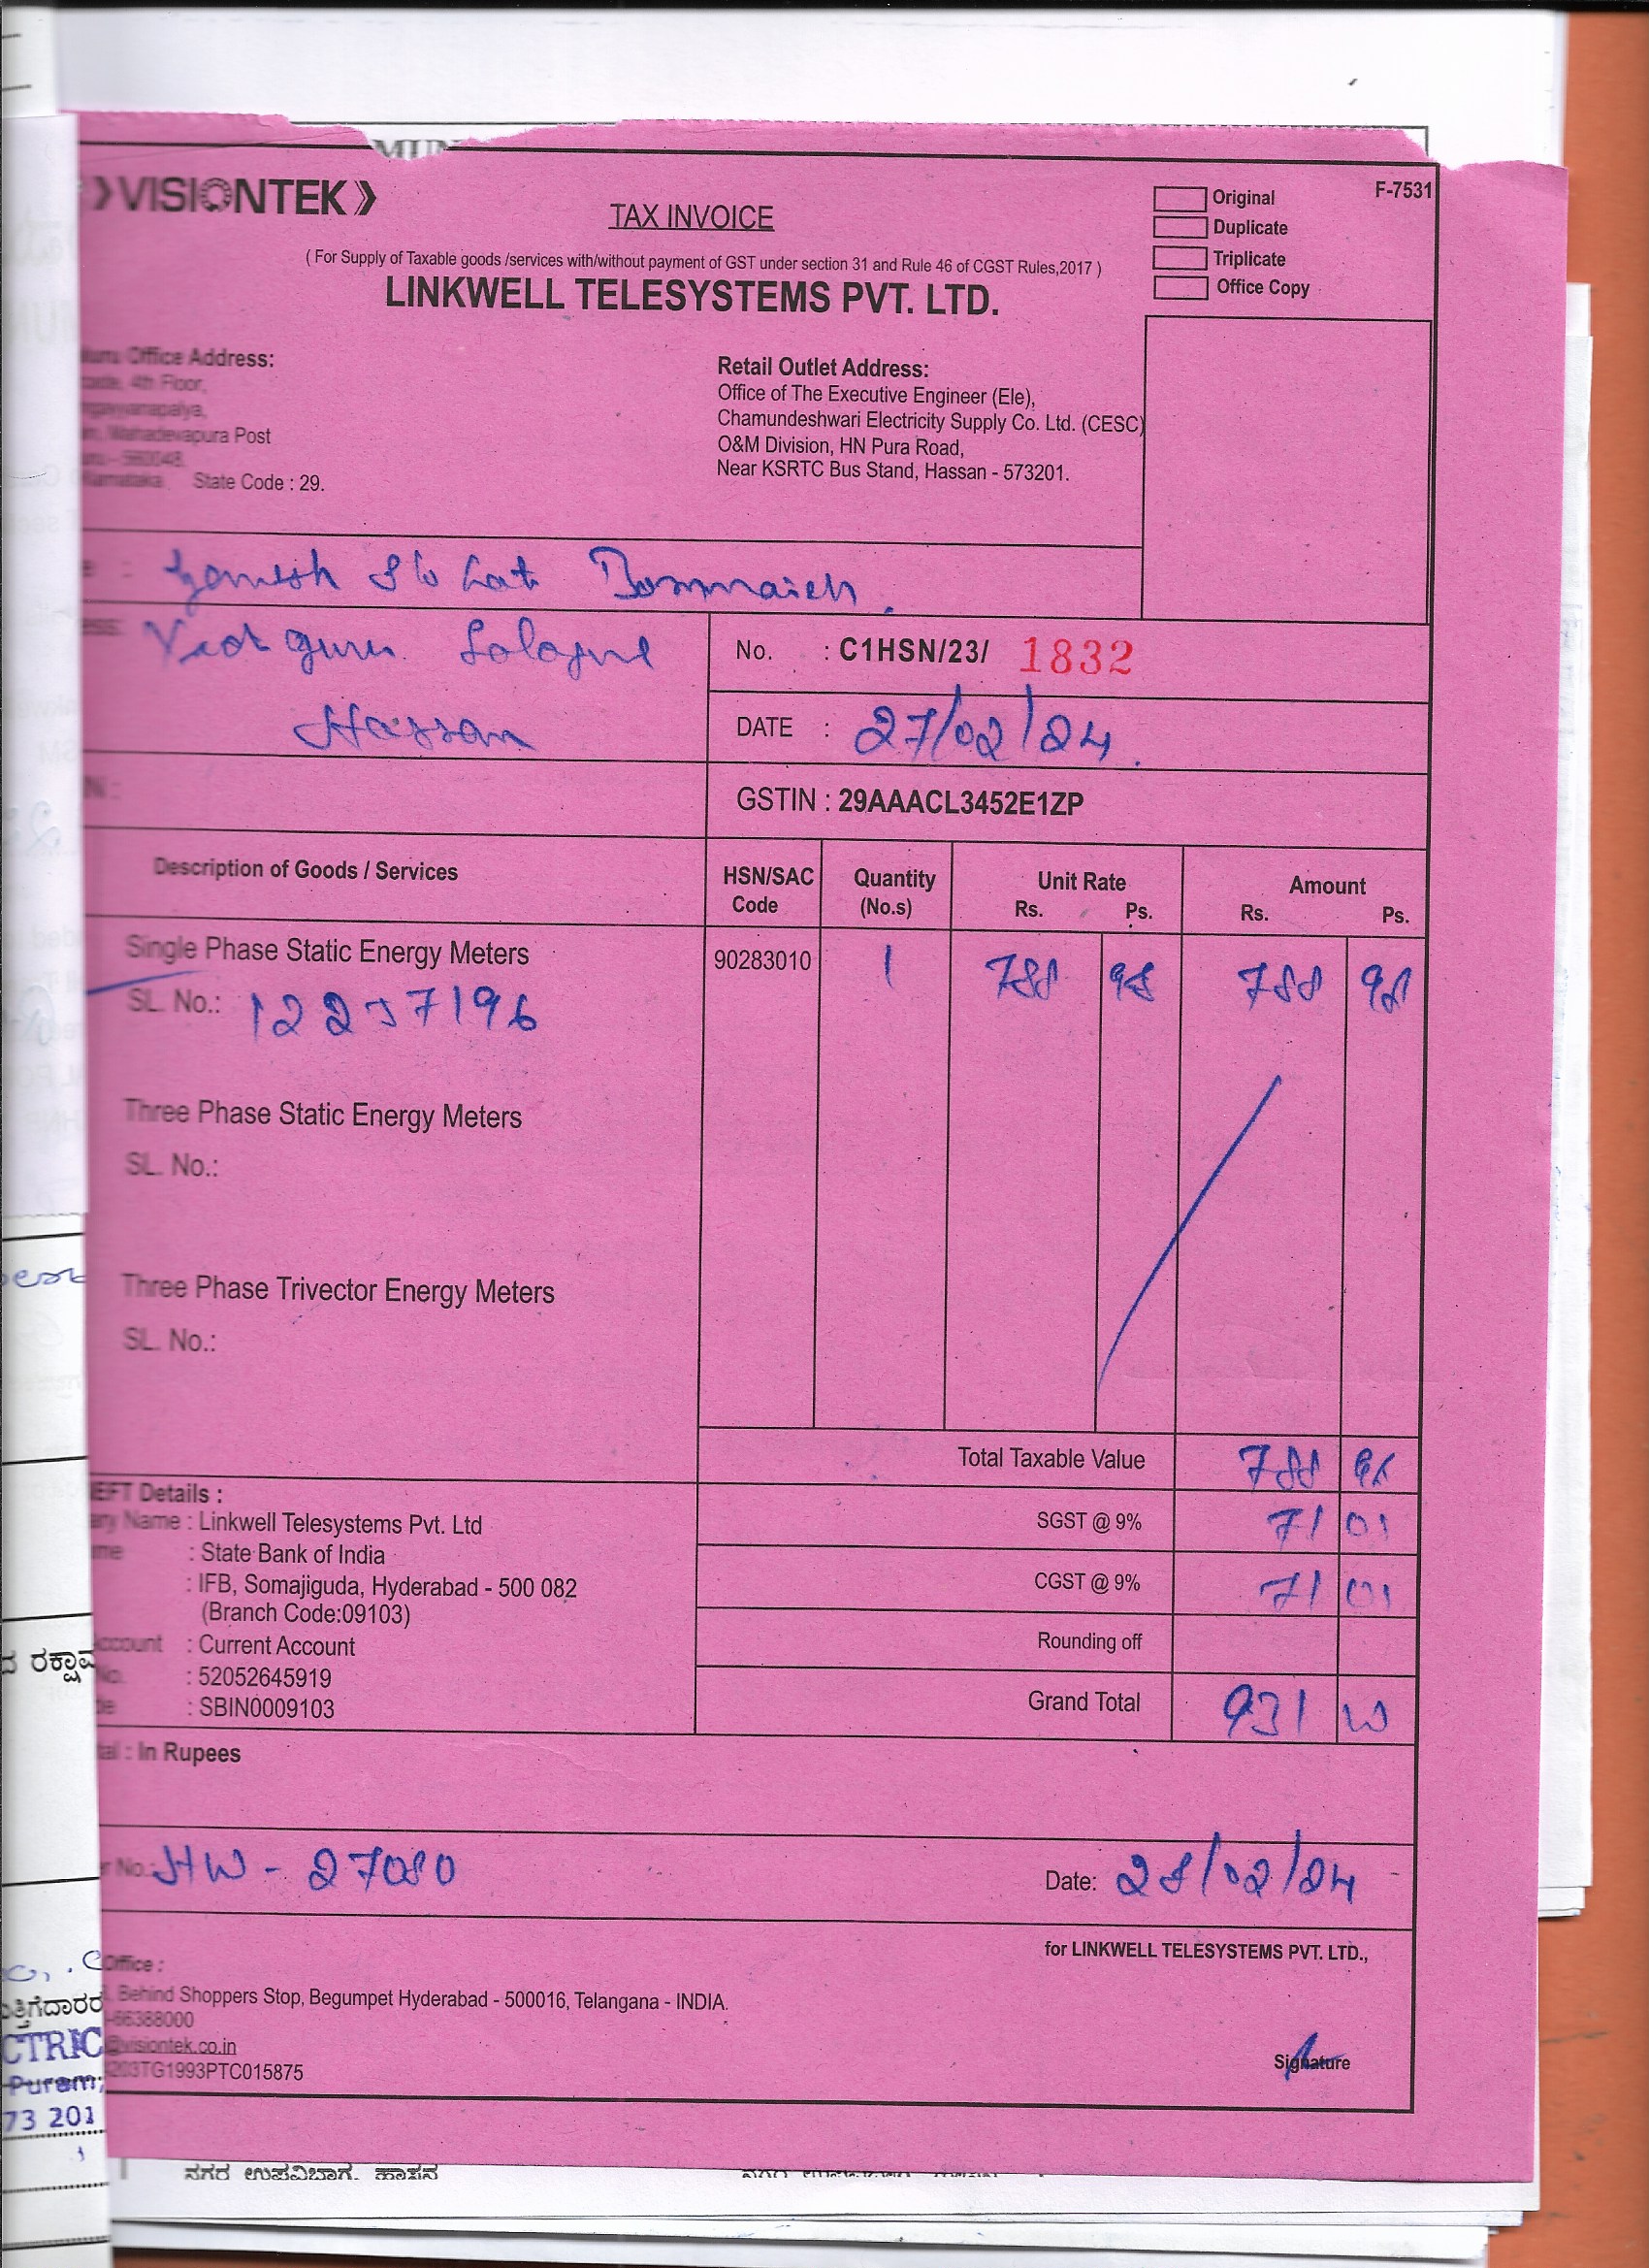 VISIONTEK
TAX INVOICE
Original
F-7531
Duplicate
Triplicate
Office Copy
( For Supply of Taxable goods /services with/without payment of GST under section 31 and Rule 46 of CGST Rules,2017 )
LINKWELL TELESYSTEMS PVT. LTD.
Office Address:
4th Floor,
Mahadevapura Post
560048.
State Code : 29.
Retail Outlet Address:
Office of The Executive Engineer (Ele),
Chamundeshwari Electricity Supply Co. Ltd. (CESC)
O&M Division, HN Pura Road,
Near KSRTC Bus Stand, Hassan - 573201.
Ganesh S/o Late Bommaiah.
Hassan
No. : C1HSN/23/ 1832
DATE : 27/02/24.
GSTIN : 29AAACL3452E1ZP
Description of Goods / Services HSN/SAC Code Quantity (No.s) Unit Rate Rs. Ps. Amount Rs. Ps.
Single Phase Static Energy Meters 90283010 1 788 98 788 98
SL. No.:
Three Phase Static Energy Meters
SL. No.:
Three Phase Trivector Energy Meters
SL. No.:
Total Taxable Value 788 98
SGST @ 9% 71 01
CGST @ 9% 71 01
Rounding off
Grand Total 931 00
EFT Details :
Name : Linkwell Telesystems Pvt. Ltd
: State Bank of India
: IFB, Somajiguda, Hyderabad - 500 082
(Branch Code:09103)
ccount : Current Account
: 52052645919
: SBIN0009103
: In Rupees
No.: HW - 27080
Date: 28/02/24
for LINKWELL TELESYSTEMS PVT. LTD.,
Office :
Behind Shoppers Stop, Begumpet Hyderabad - 500016, Telangana - INDIA.
-66388000
@visiontek.co.in
TG1993PTC015875
Signature
CTRIC
Puram,
73 201
ನಗರ ಉಪವಿಭಾಗ, ಹಾಸನ